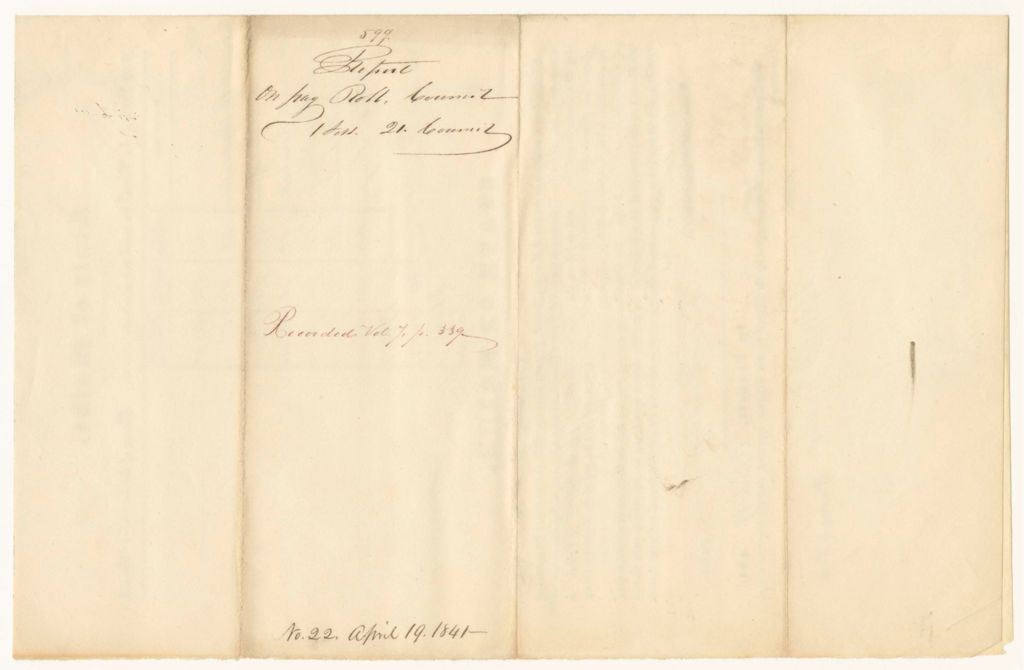 599
Report
On pay Roll, Council
1 Sess. 21. Council
Recorded Vol. 7, p. 339
No. 22. April 19. 1841